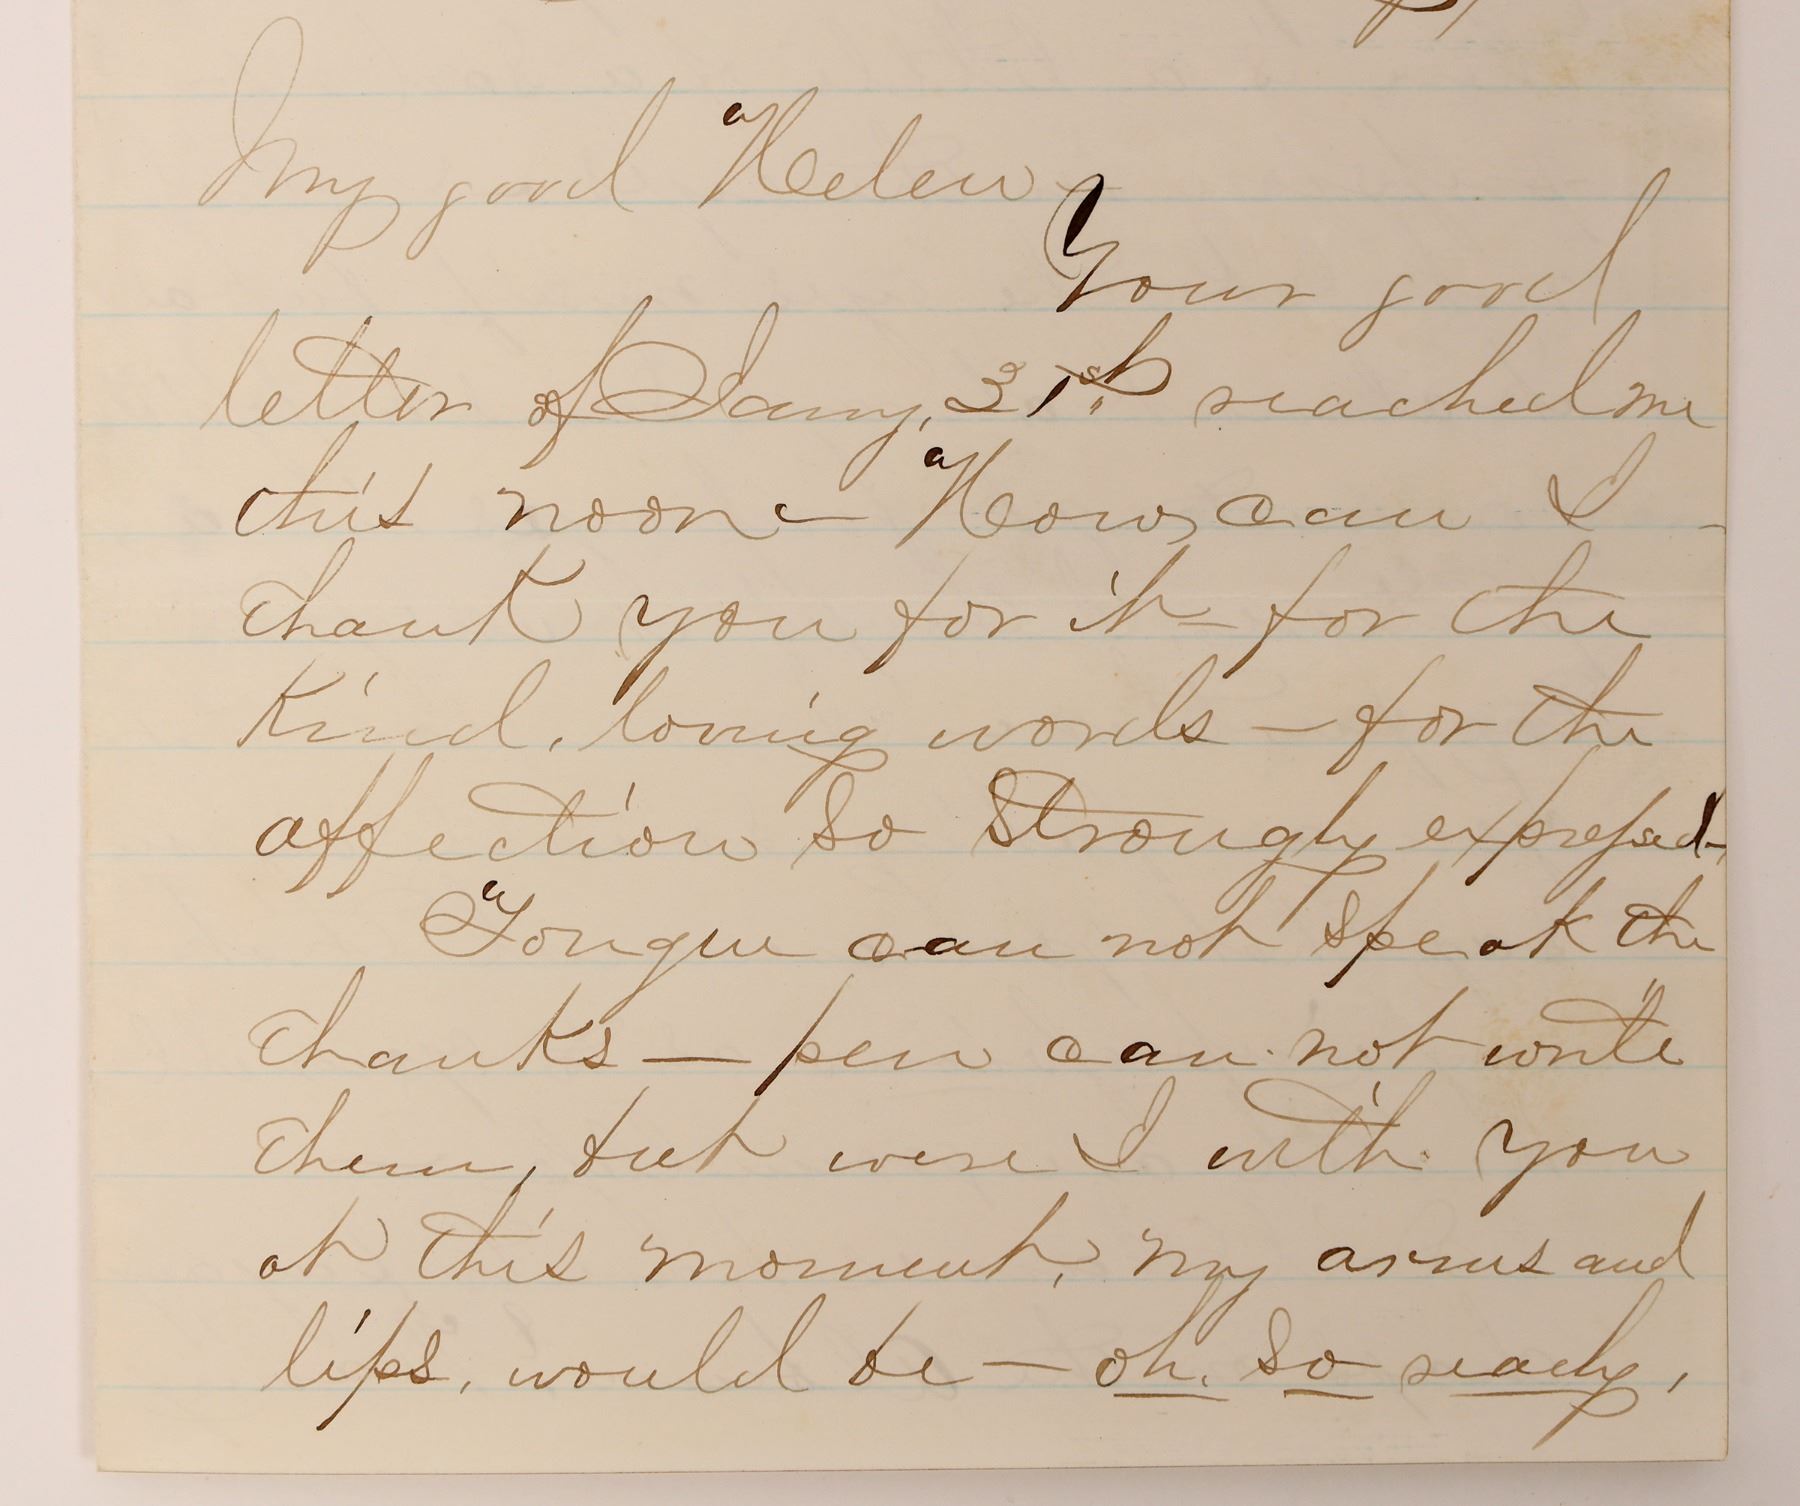 My good Helen,
Your good
letter of Jany, 31st reached me
this noon — How can I —
thank you for it — for the
kind, loving words — for the
affection so strongly expressed —
Tongue can not speak the
thanks — pen can not write
them, but were I with you
at this moment, my arms and
lips, would be — oh, so ready,